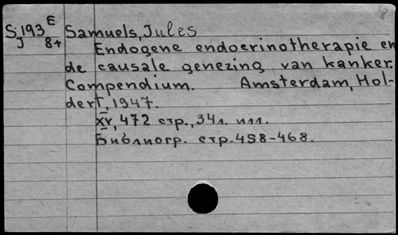 S 193 E Samuels, Jules
J 8+ Endogene endocrinotherapie en
de causale genezing van kanker.
Compendium. Amsterdam, Hol-
dert, 1947.
XV, 472 стр., 34 л. илл.
Библиогр. стр. 458-468.